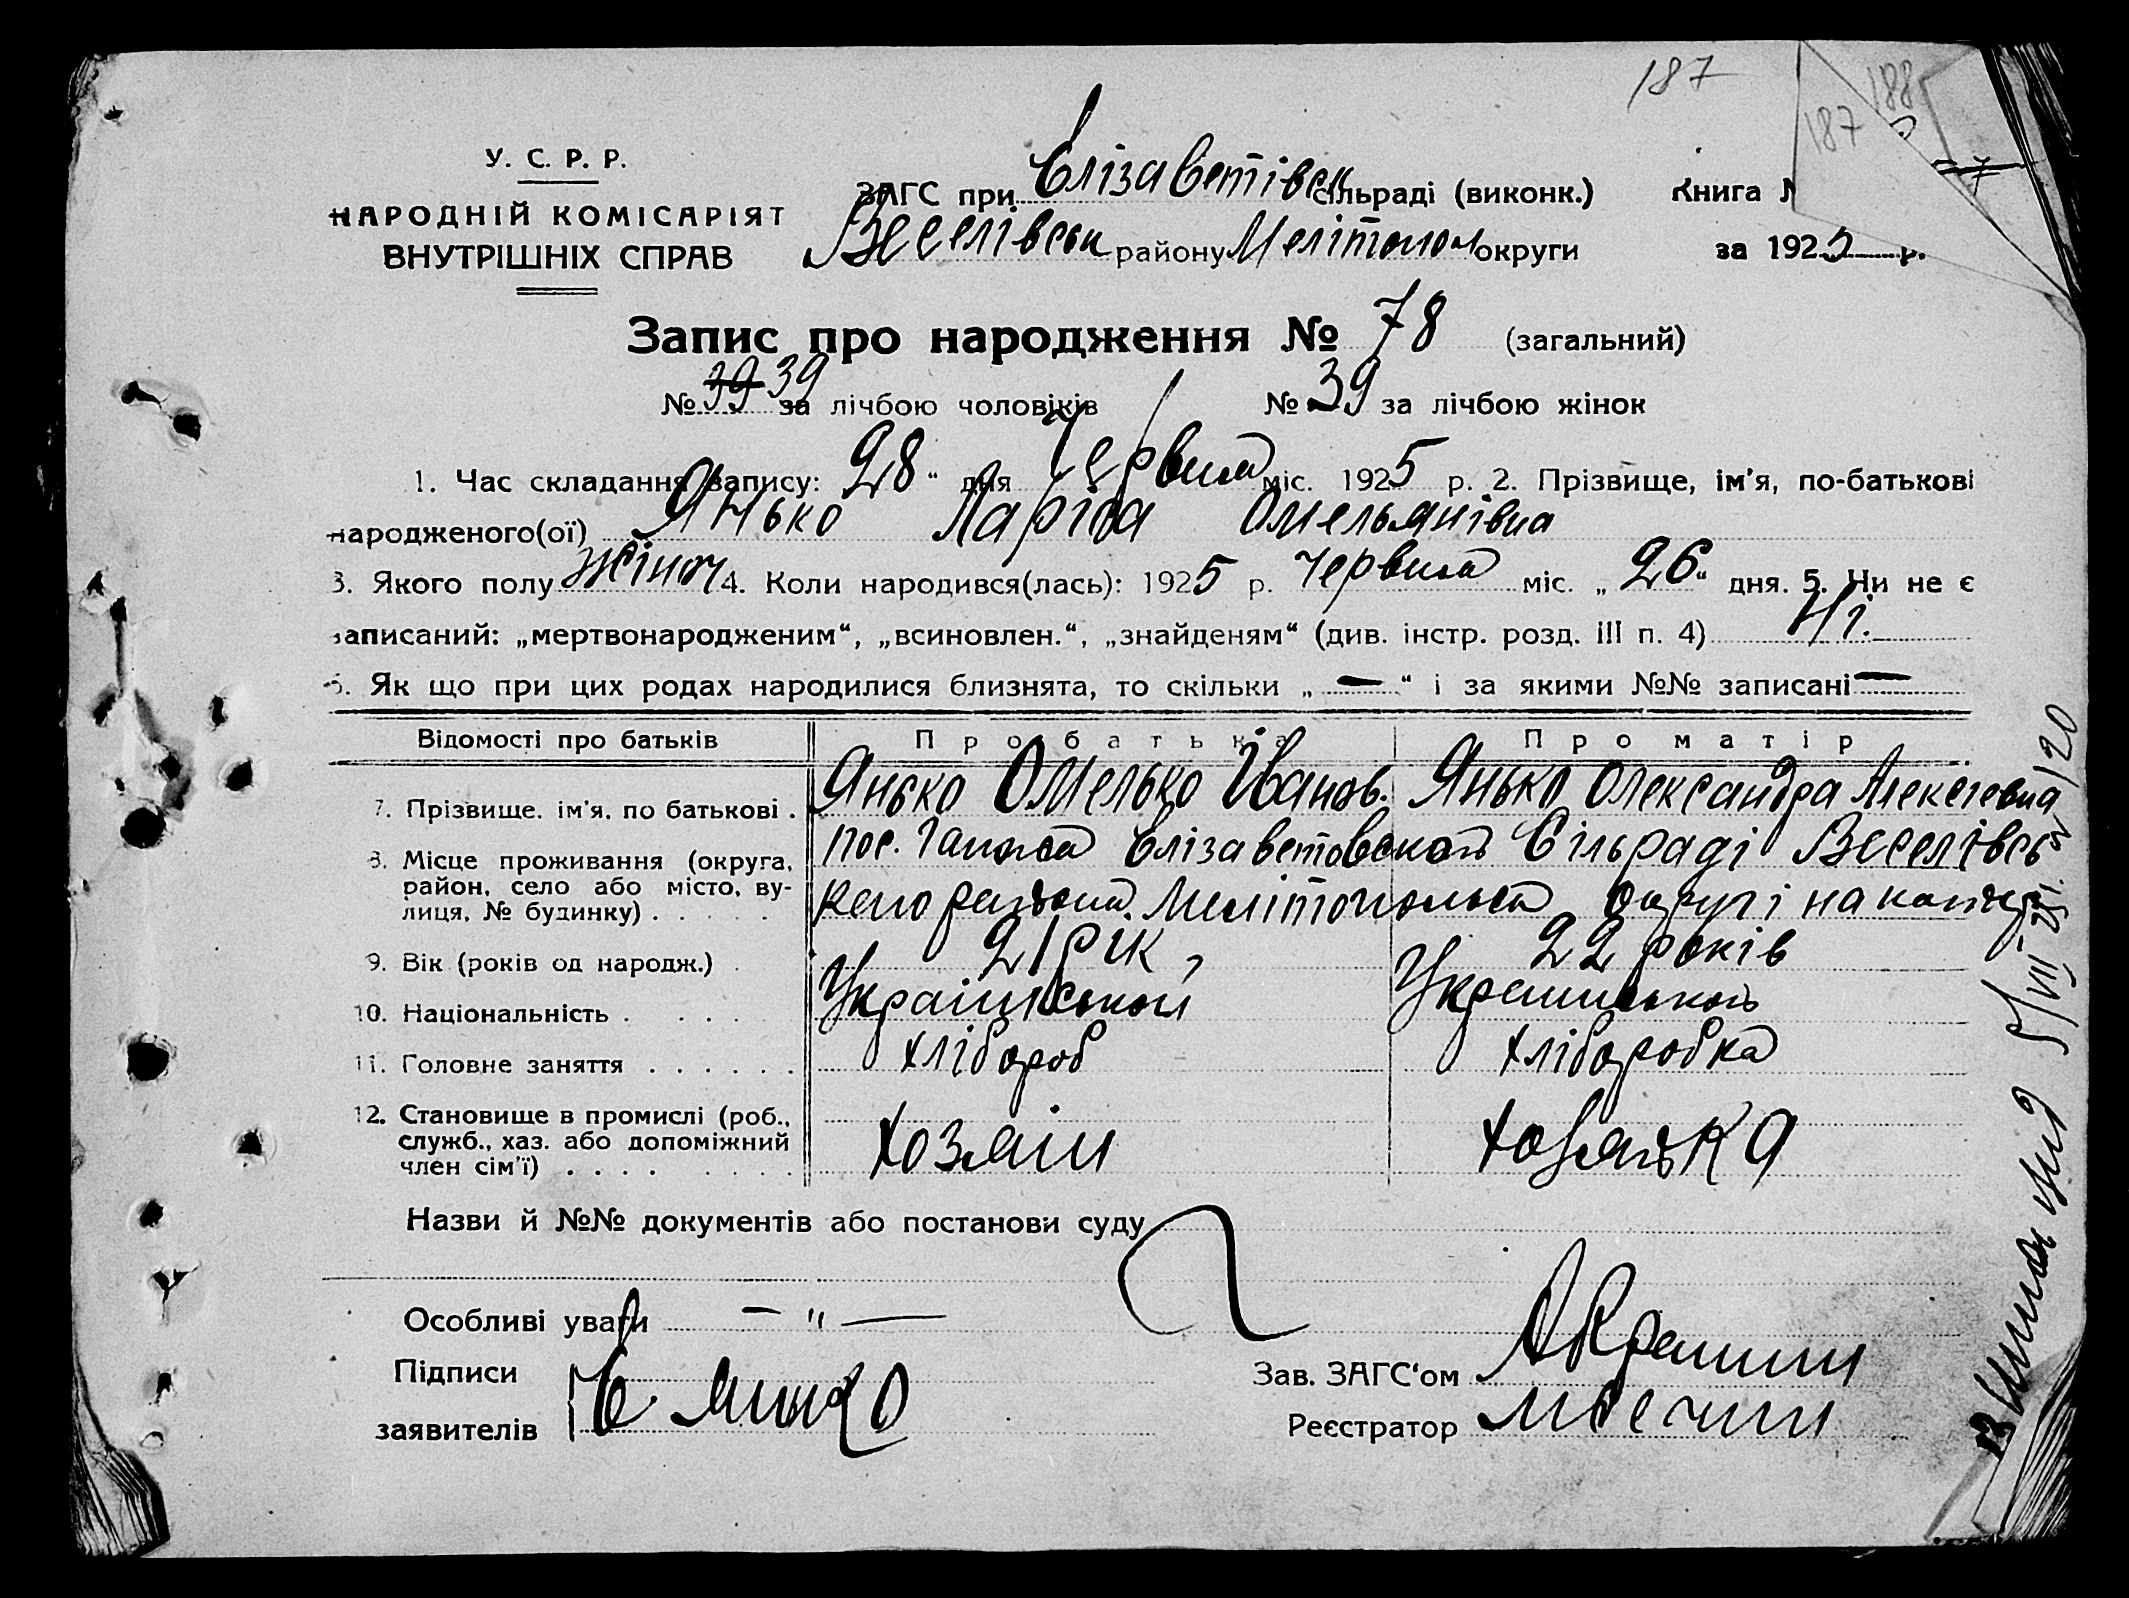 187
188
187
У. С. Р. Р.
НАРОДНІЙ КОМІСАРІЯТ
ВНУТРІШНІХ СПРАВ
ЗАГС при Єлізаветівск сільраді (виконк.) Книга
Веселівськ району Мелітопол округи за 1925 р.
Запис про народження № 78 (загальний)
№ 39 39 за лічбою чоловіків № 39 за лічбою жінок
1. Час складання запису: 28 " дня Червня міс. 1925 р. 2. Прізвище, ім'я, по-батькові
народженого(ої) Янько Ларіса Омельянівна
3. Якого полу жіноч 4. Коли народився(лась): 1925 р. Червня міс. „ 26 " дня. 5. Чи не є
записаний: „мертвонародженим", „всиновлен.", „знайденям" (див. інстр. розд. III п. 4) Ні.
6. Як що при цих родах народилися близнята, то скільки „ — " і за якими №№ записані —
Відомості про батьків Про батька Про матір
7. Прізвище, ім'я, по батькові . Янько Омелько Іванов. Янько Олександра Алексіевна
8. Місце проживання (округа, район, село або місто, вулиця, № будинку) . . . . .
пос. Елізаветовскои Сільраді Веселівсь
Мелітопольск Округі
9. Вік (років од народж.) . 21 рік, 22 років
10. Національність . . . . . Українськой Українськой
11. Головне заняття . . . . . . хлібороб хліборобка
12. Становище в промислі (роб., служб., хаз. або допоміжний член сім'ї) . . . . . . . . хозяїн хозяйка
Назви й №№ документів або постанови суду
Особливі уваги — " —
Підписи
заявителів
Зав. ЗАГС'ом
Реєстратор